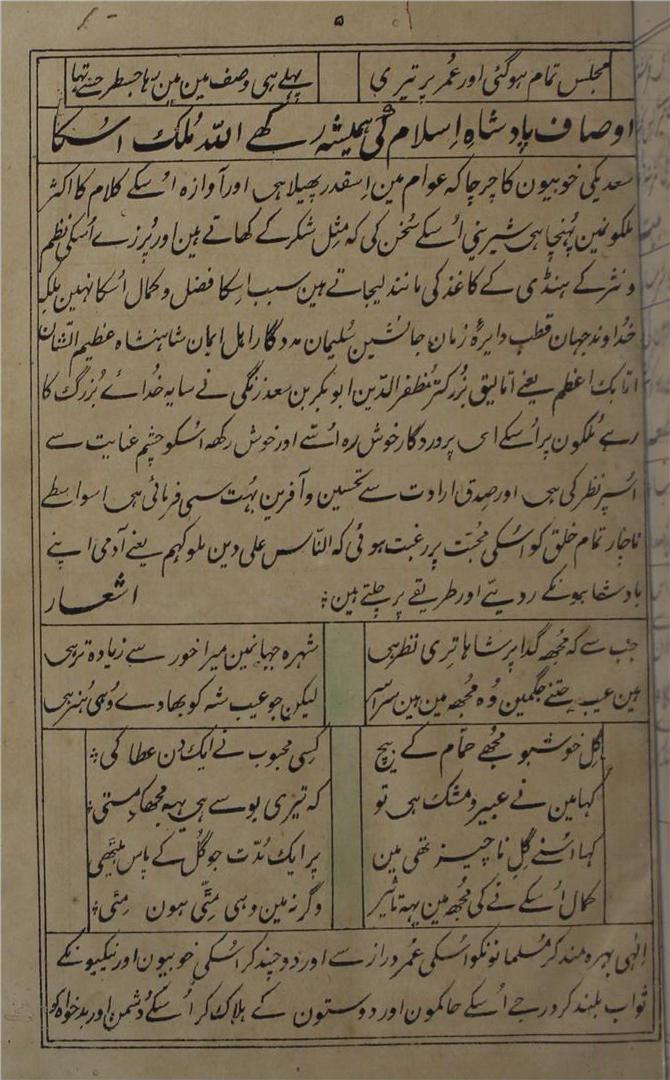 ۵
مجلس تمام ہوگئی اور عمر پر تیری پہلے ہی وصف مین مین رہا جسطرحسے تہا
اوصاف پادشاہِ اسلام کی ہمیشہ رکھے اللہ مُلک اُسکا
سعدیکی خوبیون کا چرچا کہ عوام مین اِسقدر پھیلا ہی اور آوازہ اُسکے کلام کا اکثر
ملکونمین پُہنچا ہی شیرینی اُسکے سُخن کی کہ مثل شکر کے کھاتے ہین اور پُرزے اُسکی نظم
و نثر کے ہنڈی کے کاغذ کی مانند لیجاتے ہین سبب اسکا فضل و کمال اُسکا نہین بلکہ
خُداوندِ جہان قطبِ دایرۂ زمان جانشین سُلیمان مددگار اہل ایمان شاہنشاہ عظیم الشان
اتابک اعظم یعنے اتالیق بزرگتر مُظفر الدّین ابوبکر بن سعد زنگی نے سایہ خُداے بُزرگ کا
رہے مُلکون پر اُسکے اے پروردگار خوش رہ اُسّے اور خوش رکھہ اُسکو چشمِ عنایت سے
اُسپر نظر کی ہی اور صِدق ارادت سے تحسین و آفرین بہُت سی فرمائی ہی اسواسطے
ناچار تمام خلق کو اُسکی محبّت پر رغبت ہوئی کہ النّاس علی دین ملوکہم یعنے آدمی اپنے
بادشاہونکے رویّے اور طریقے پر چلتے ہین
اشعار
جب سے کہ مُجھہ گدا پر شاہا تری نظر ہی شہرہ جہانمین میرا خور سے زیادہ تر ہی
ہین عیب جتنے جگمین وُہ مُجھہ مین ہین سراسر لیکن جو عیب شہ کو بھاوے وُہی ہُنر ہی
گِل خوشبو مجھے حمّام کے بیچ کِسی محبوب نے ایک دن عطا کی
کہا مین نے عبیر و مُشک ہی تو کہ تیری بو سے ہی یہہ مجھکو مستی
کہا اُسنے گِل ناچیز تھی مین پر ایک مُدّت جو گُل کے پاس بیٹھی
کمال اُسکے نے کی مُجھہ مین یہہ تاثیر وگرنہ مین وہی مِٹّی ہون مِٹی
اِلٰہی بہرہ مند کر مُسلمانونکو اُسکی عُمر دراز سے اور دوچند کر اُسکی خوبیون اور نیکیونکے
ثواب بلند کر درجے اُسکے حاکمون اور دوستون کے ہلاک کر اُسکے دُشمن اور بدخواہ کو